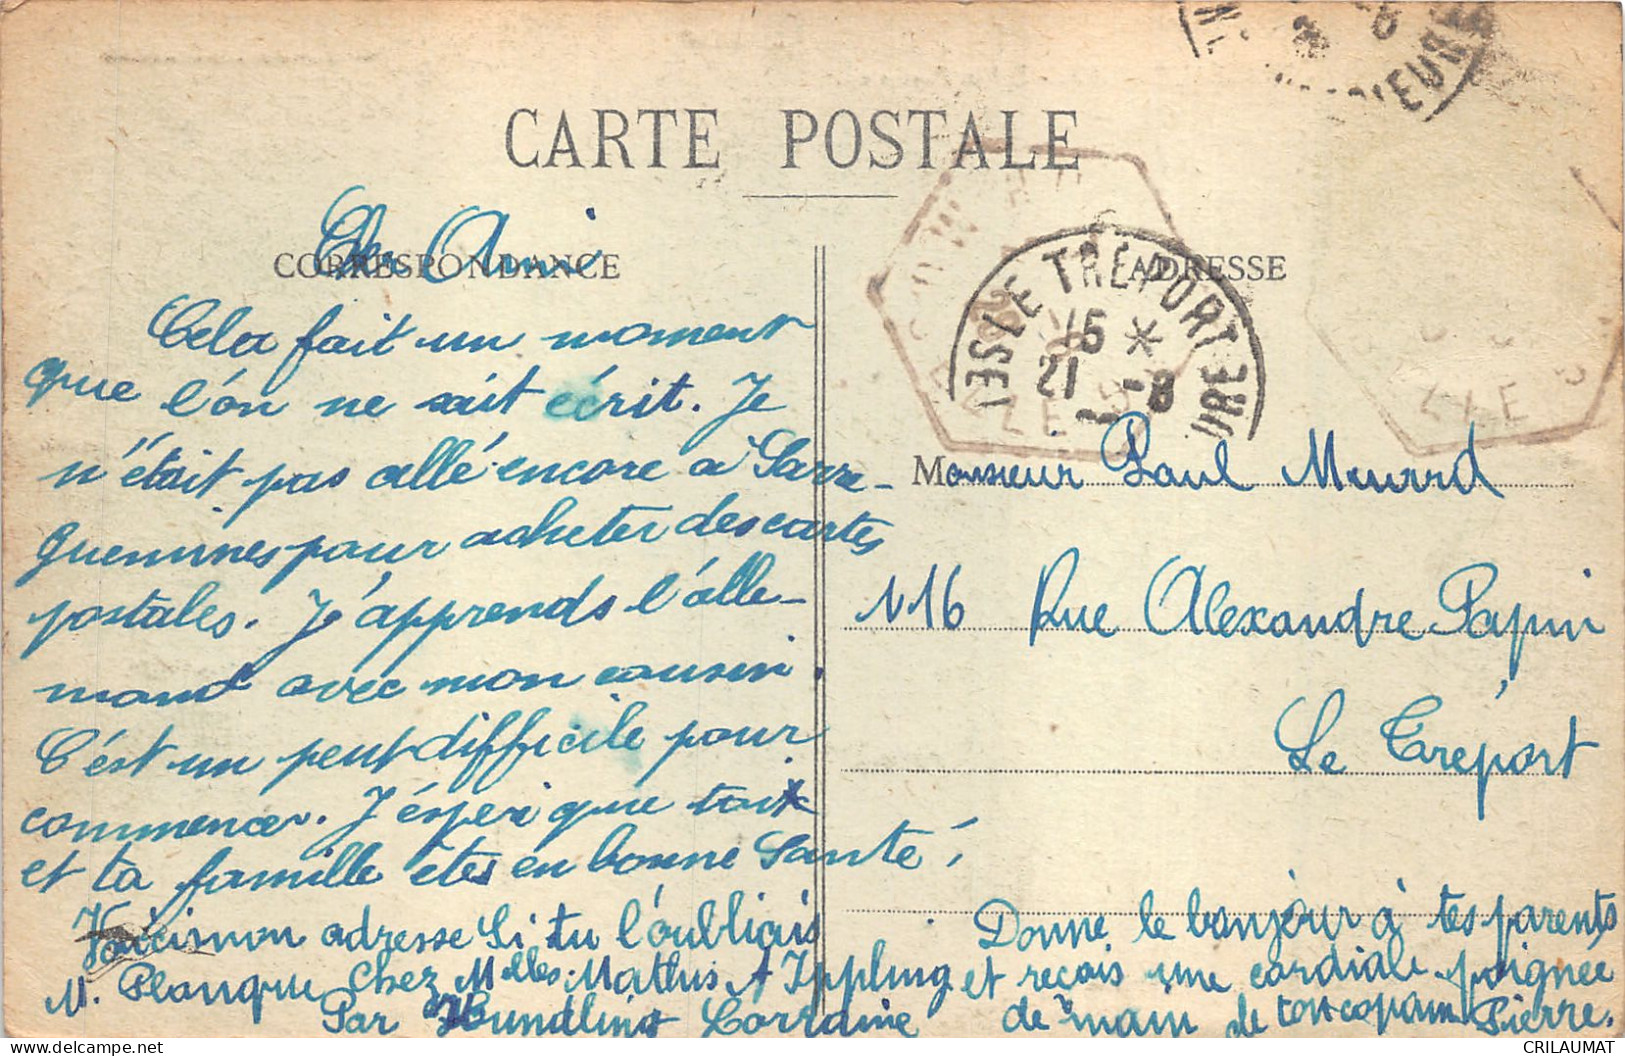 CARTE POSTALE
CORRESPONDANCE
ADRESSE
Cher Ami
Cela fait un moment
que l'on ne sait écrit. Je
n'était pas allé encore a Sarre-
guemines pour acheter des cartes
postales. J'apprends l'alle-
mand avec mon cousin.
C'est un peut difficile pour
commencer. J'éspèri que toi
et ta famille étes en bonne Santé!
Voici mon adresse Si tu l'oubliais
M. Planque chez Melles Mathis A Ippling
Par Hundling Lorraine
LE TRÉPORT
15 *
21 -8
Monsieur Paul Menard
N16 Rue Alexandre Papin
Le Tréport
Donne le bonjour à tes parents
et reçois une cordiale poignée
de main de ton copain Pierre.
CRILAUMAT